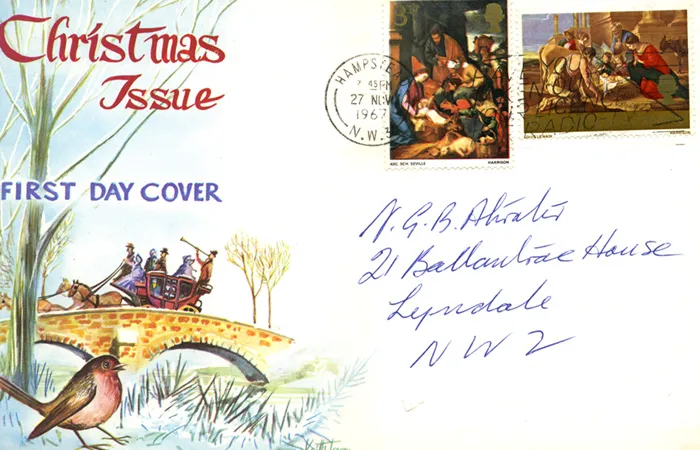 Christmas
Issue
FIRST DAY COVER
HAMPSTEA
7 45 PM
27 NOV
1967
N.W.3
3D
ASC. SCH. SEVILLE HARRISON
LOUIS LE NAIN HARRISON
N. G. B.
21 Ballantrae House
Lyndale
NW2